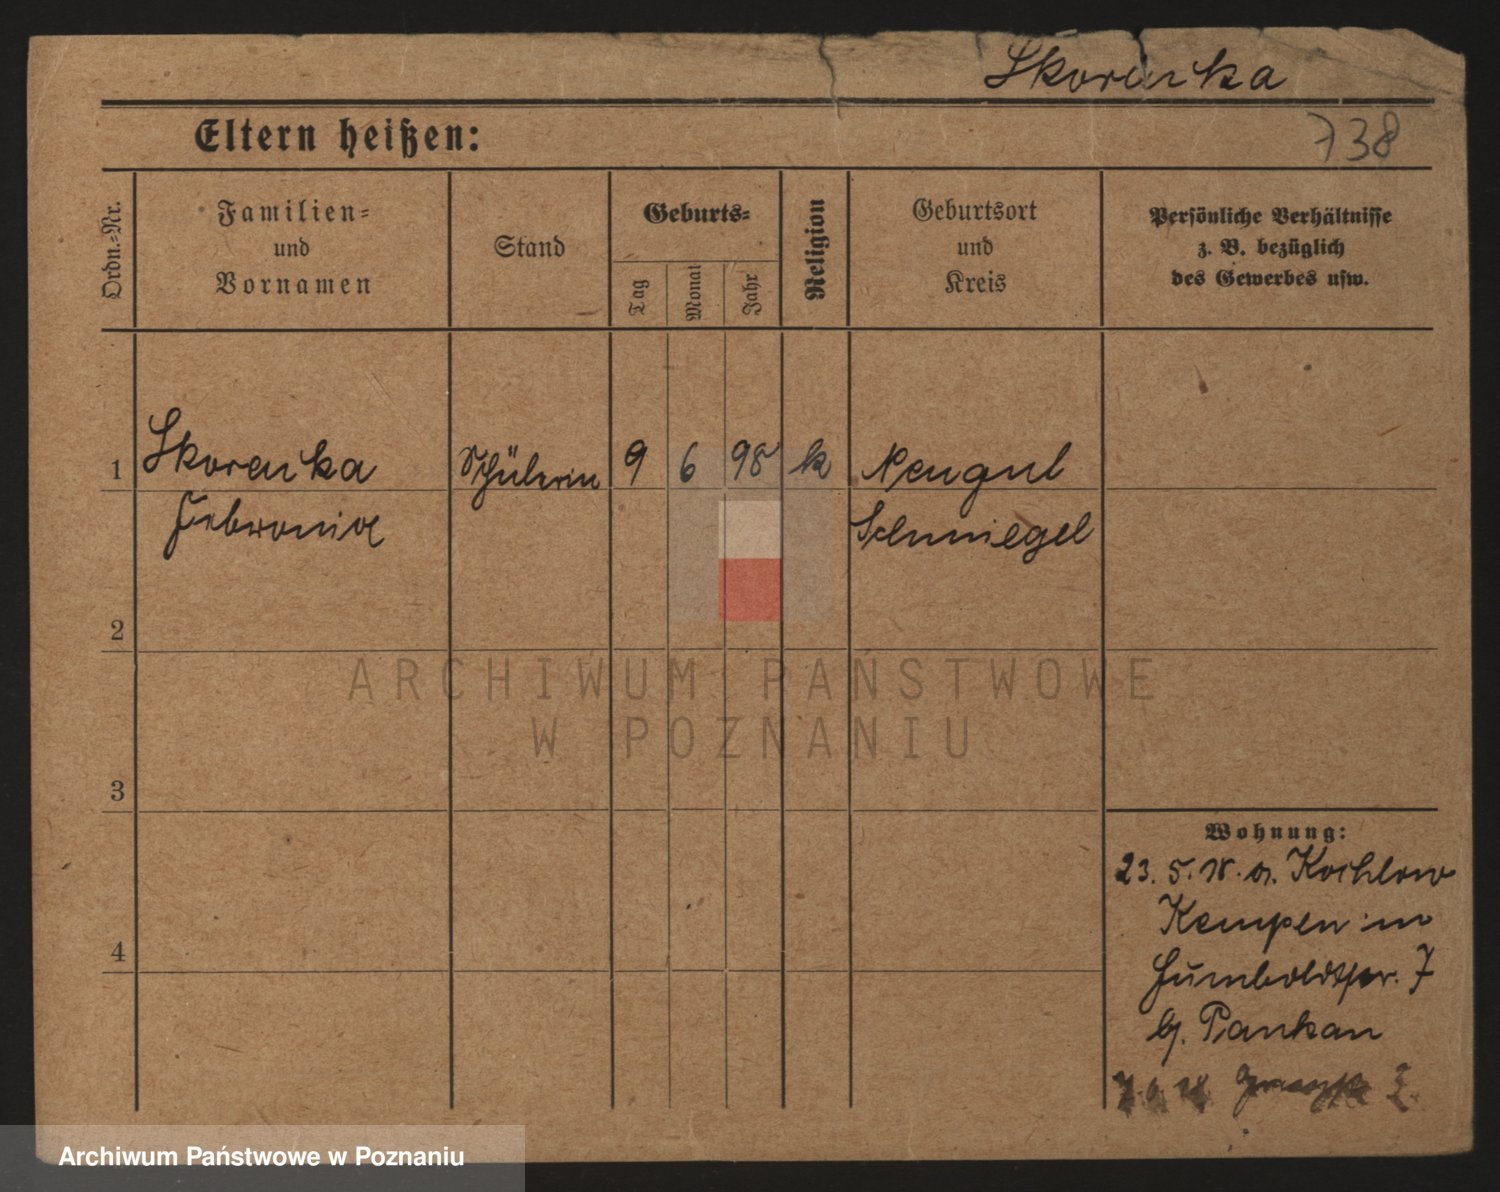 Skoracka
Eltern heißen:
738
Ordn.=Nr.
Familien=
und
Vornamen
Stand
Geburts=
Tag
Monat
Jahr
Religion
Geburtsort
und
Kreis
Persönliche Verhältnisse
z. B. bezüglich
des Gewerbes usw.
1
Skoracka
Schülerin
9
6
98
k
Neugut
Febronia
Schmiegel
2
ARCHIWUM PAŃSTWOWE
W POZNANIU
3
Wohnung:
23. 5. 18. a. Kochlow
4
Kempen
Humboldtstr. 7
b. Pankau
Archiwum Państwowe w Poznaniu